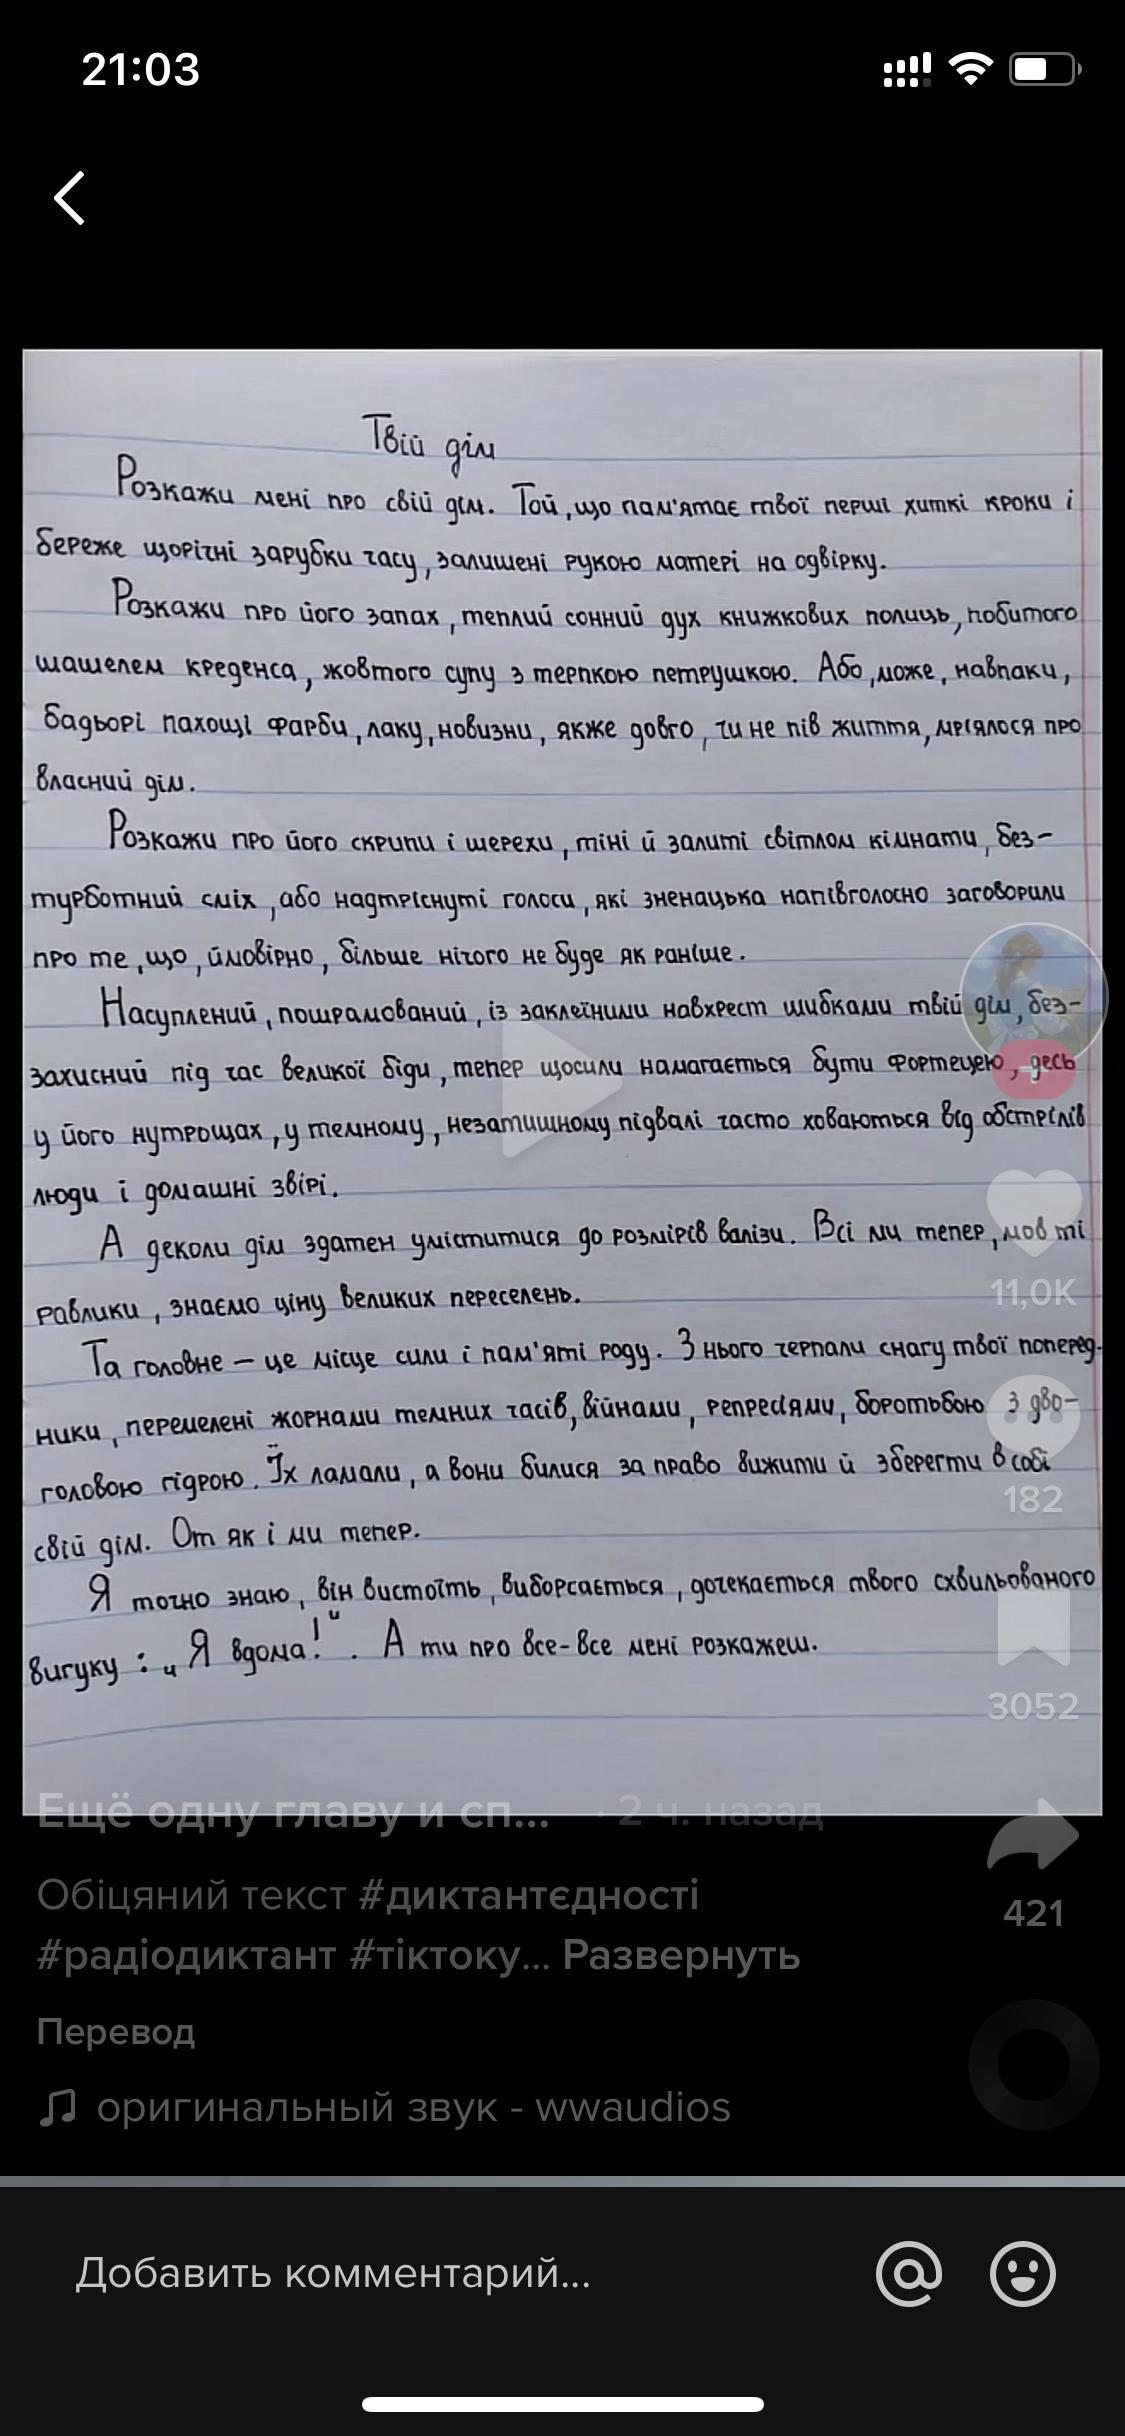 21:03
Твій дім
Розкажи мені про свій дім. Той, що пам'ятає твої перші хиткі кроки і
береже щорічні зарубки часу, залишені рукою матері на одвірку.
Розкажи про його запах, теплий сонний дух книжкових полиць, побитого
шашелем креденса, жовтого супу з терпкою петрушкою. Або, може, навпаки,
бадьорі пахощі фарби, лаку, новизни, якже довго, чи не пів життя, мріялося про
власний дім.
Розкажи про його скрипи і шерехи, тіні й залиті світлом кімнати, без-
турботний сміх, або надтріснуті голоси, які зненацька напівголосно заговорили
про те, що, ймовірно, більше нічого не буде як раніше.
Насуплений, пошрамований, із заклеїними навхрест шибками твій дім, без-
захисний під час великої біди, тепер щосили намагається бути фортецею, десь
у його нутрощах, у темному, незатишному підвалі часто ховаються від обстрілів
люди і домашні звірі.
А деколи дім здатен умістится до розмірів валізи. Всі ми тепер, мов ті
равлики, знаємо ціну великих переселень.
Та головне – це місце сили і пам'яті роду. З нього черпали снагу твої поперед-
ники, перемелені жорнами темних часів, війнами, репресіями, боротьбою з дво-
головою гідрою. Їх ламали, а вони билися за право вижити й зберегти в собі
свій дім. От як і ми тепер.
Я точно знаю, він вистоїть, виборсається, дочекається твого схвильованого
вигуку: „Я вдома!". А ти про все-все мені розкажеш.
11,0K
182
3052
421
Ещё одну главу и сп... · 2 ч. назад
Обіцяний текст #диктантєдності
#радіодиктант #тіктоку... Развернуть
Перевод
оригинальный звук - wwaudios
Добавить комментарий...